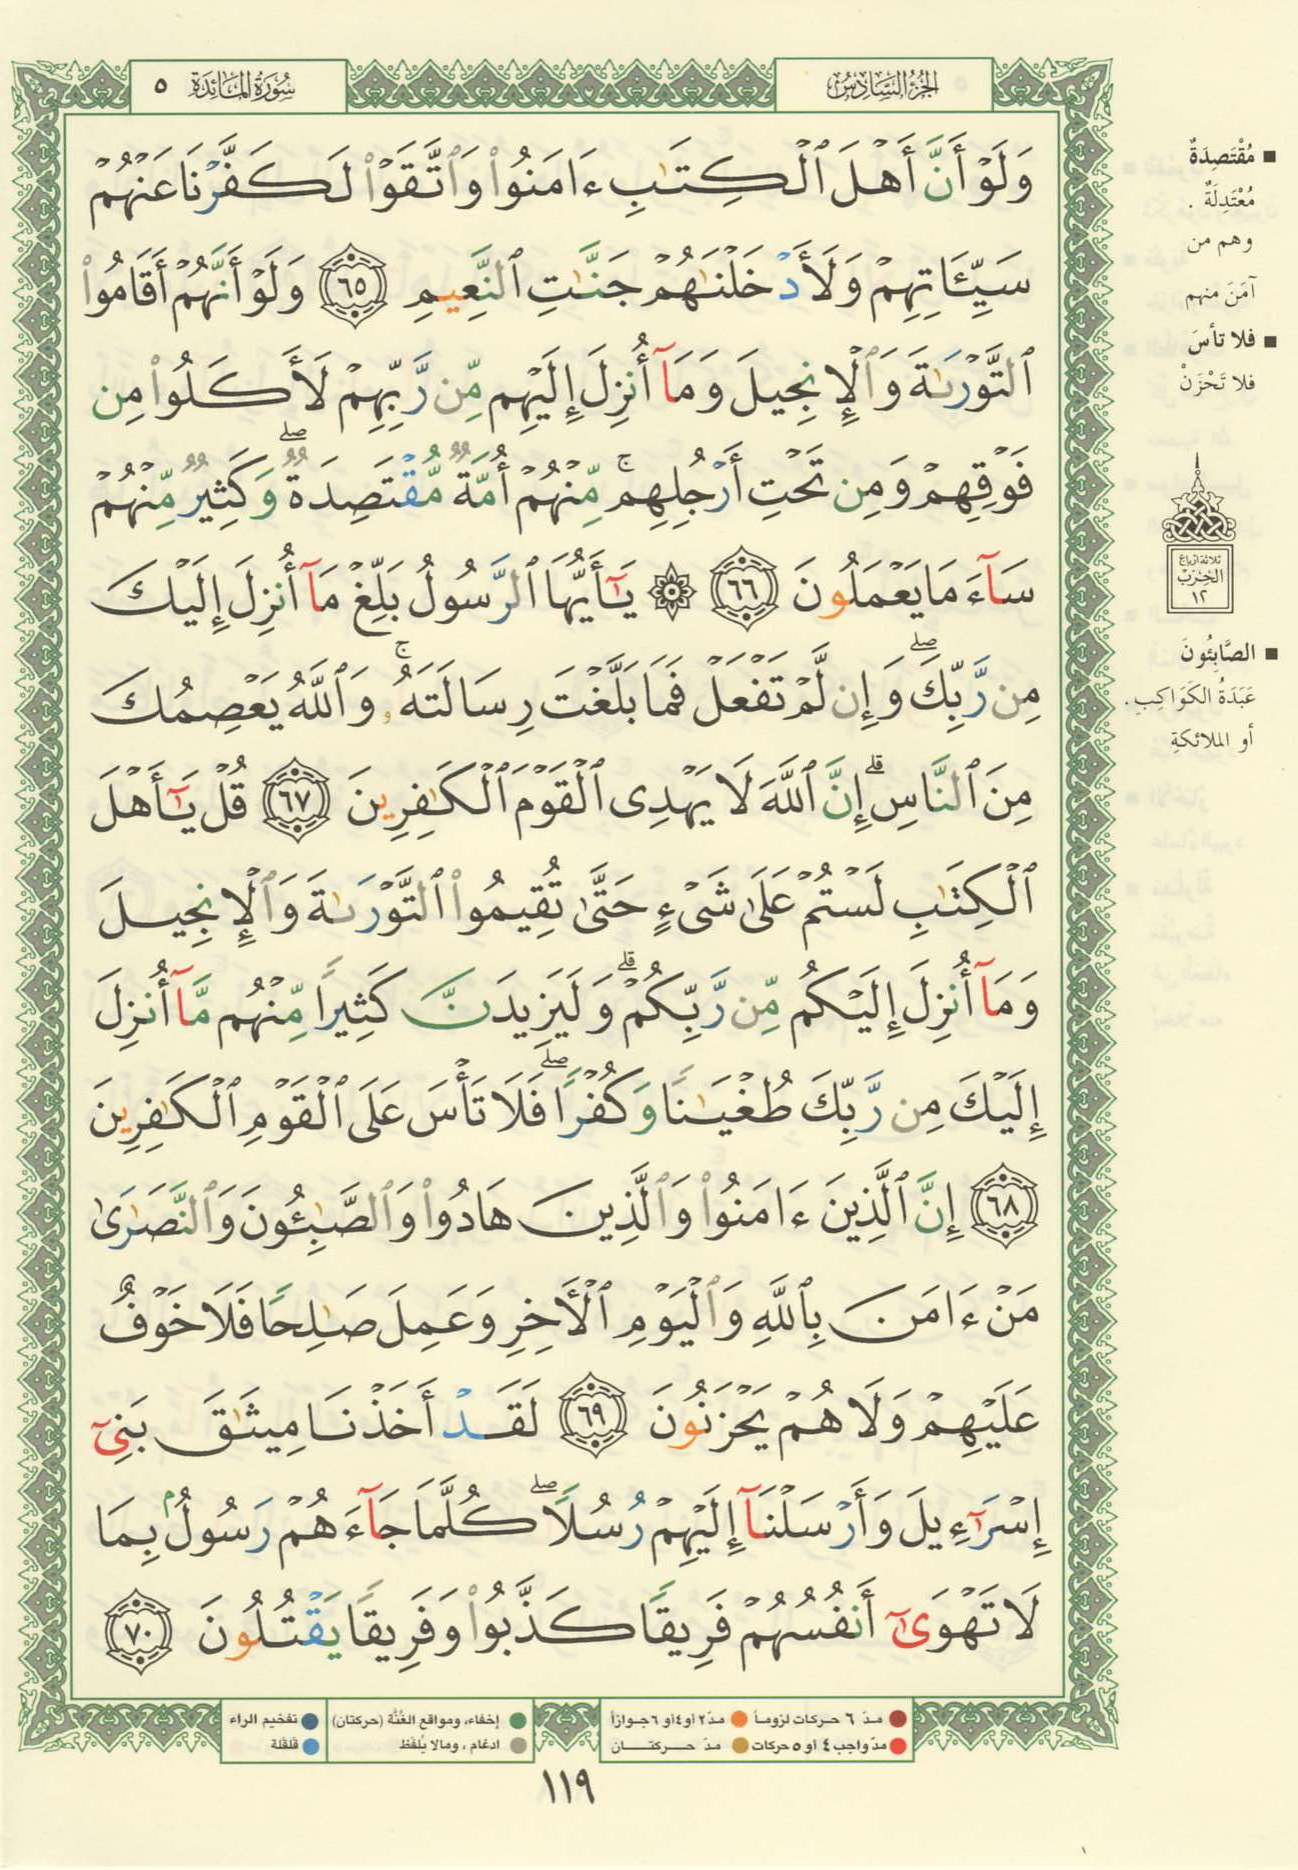 سُورَةُ المَائدَة ٥
الجُزْءُ السَّادِسُ
وَلَوْ أَنَّ أَهْلَ ٱلْكِتَٰبِ ءَامَنُوا۟ وَٱتَّقَوْا۟ لَكَفَّرْنَا عَنْهُمْ
سَيِّـَٔاتِهِمْ وَلَأَدْخَلْنَٰهُمْ جَنَّٰتِ ٱلنَّعِيمِ ٦٥ وَلَوْ أَنَّهُمْ أَقَامُوا۟
ٱلتَّوْرَىٰةَ وَٱلْإِنجِيلَ وَمَآ أُنزِلَ إِلَيْهِم مِّن رَّبِّهِمْ لَأَكَلُوا۟ مِن
فَوْقِهِمْ وَمِن تَحْتِ أَرْجُلِهِم ۚ مِّنْهُمْ أُمَّةٌ مُّقْتَصِدَةٌ ۖ وَكَثِيرٌ مِّنْهُمْ
سَآءَ مَا يَعْمَلُونَ ٦٦ ۞ يَٰٓأَيُّهَا ٱلرَّسُولُ بَلِّغْ مَآ أُنزِلَ إِلَيْكَ
مِن رَّبِّكَ ۖ وَإِن لَّمْ تَفْعَلْ فَمَا بَلَّغْتَ رِسَالَتَهُۥ ۚ وَٱللَّهُ يَعْصِمُكَ
مِنَ ٱلنَّاسِ ۗ إِنَّ ٱللَّهَ لَا يَهْدِى ٱلْقَوْمَ ٱلْكَٰفِرِينَ ٦٧ قُلْ يَٰٓأَهْلَ
ٱلْكِتَٰبِ لَسْتُمْ عَلَىٰ شَىْءٍ حَتَّىٰ تُقِيمُوا۟ ٱلتَّوْرَىٰةَ وَٱلْإِنجِيلَ
وَمَآ أُنزِلَ إِلَيْكُم مِّن رَّبِّكُمْ ۗ وَلَيَزِيدَنَّ كَثِيرًا مِّنْهُم مَّآ أُنزِلَ
إِلَيْكَ مِن رَّبِّكَ طُغْيَٰنًا وَكُفْرًا ۖ فَلَا تَأْسَ عَلَى ٱلْقَوْمِ ٱلْكَٰفِرِينَ
٦٨ إِنَّ ٱلَّذِينَ ءَامَنُوا۟ وَٱلَّذِينَ هَادُوا۟ وَٱلصَّٰبِـُٔونَ وَٱلنَّصَٰرَىٰ
مَنْ ءَامَنَ بِٱللَّهِ وَٱلْيَوْمِ ٱلْأَخِرِ وَعَمِلَ صَٰلِحًا فَلَا خَوْفٌ
عَلَيْهِمْ وَلَا هُمْ يَحْزَنُونَ ٦٩ لَقَدْ أَخَذْنَا مِيثَٰقَ بَنِىٓ
إِسْرَٰٓءِيلَ وَأَرْسَلْنَآ إِلَيْهِمْ رُسُلًا ۖ كُلَّمَا جَآءَهُمْ رَسُولٌۢ بِمَا
لَا تَهْوَىٰٓ أَنفُسُهُمْ فَرِيقًا كَذَّبُوا۟ وَفَرِيقًا يَقْتُلُونَ ٧٠
■ مُقْتَصِدَةٌ
مُعْتَدِلَةٌ .
وهم من
آمَنَ منهم
■ فلا تأسَ
فلا تَحْزَنْ
ثلاثة أرباع
الحِزْب
١٢
■ الصَّابِئُونَ
عَبَدَةُ الكَوَاكِبِ.
أو الملائكةِ
● مدّ ٦ حركات لزوماً ● مدّ٢ أو٤ أو ٦ جوازاً
● مدّ واجب ٤ أو ٥ حركات ● مدّ حـركتـــان
● إخفاء، ومواقع الغُنَّة (حركتان) ● تفخيم الراء
● ادغام ، ومالا يُلفَظ ● قلقلة
١١٩